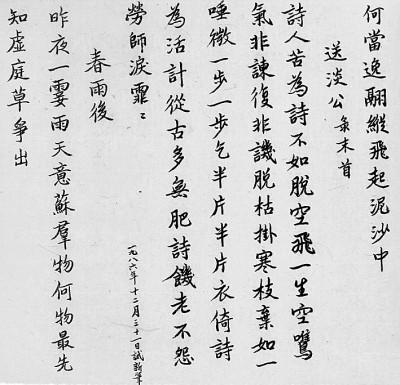 何當逸翮縱飛起泥沙中
送淡公 录末首
詩人苦為詩不如脫空飛一生空鷕
氣非諫復非譏脫枯掛寒枝棄如一
唾微一步一步乞半片半片衣倚詩
為活計從古多無肥詩饑老不怨
勞師淚霏〻
一九八六年十二月三十一日試新筆
春雨後
昨夜一霎雨天意蘇羣物何物最先
知虛庭草爭出